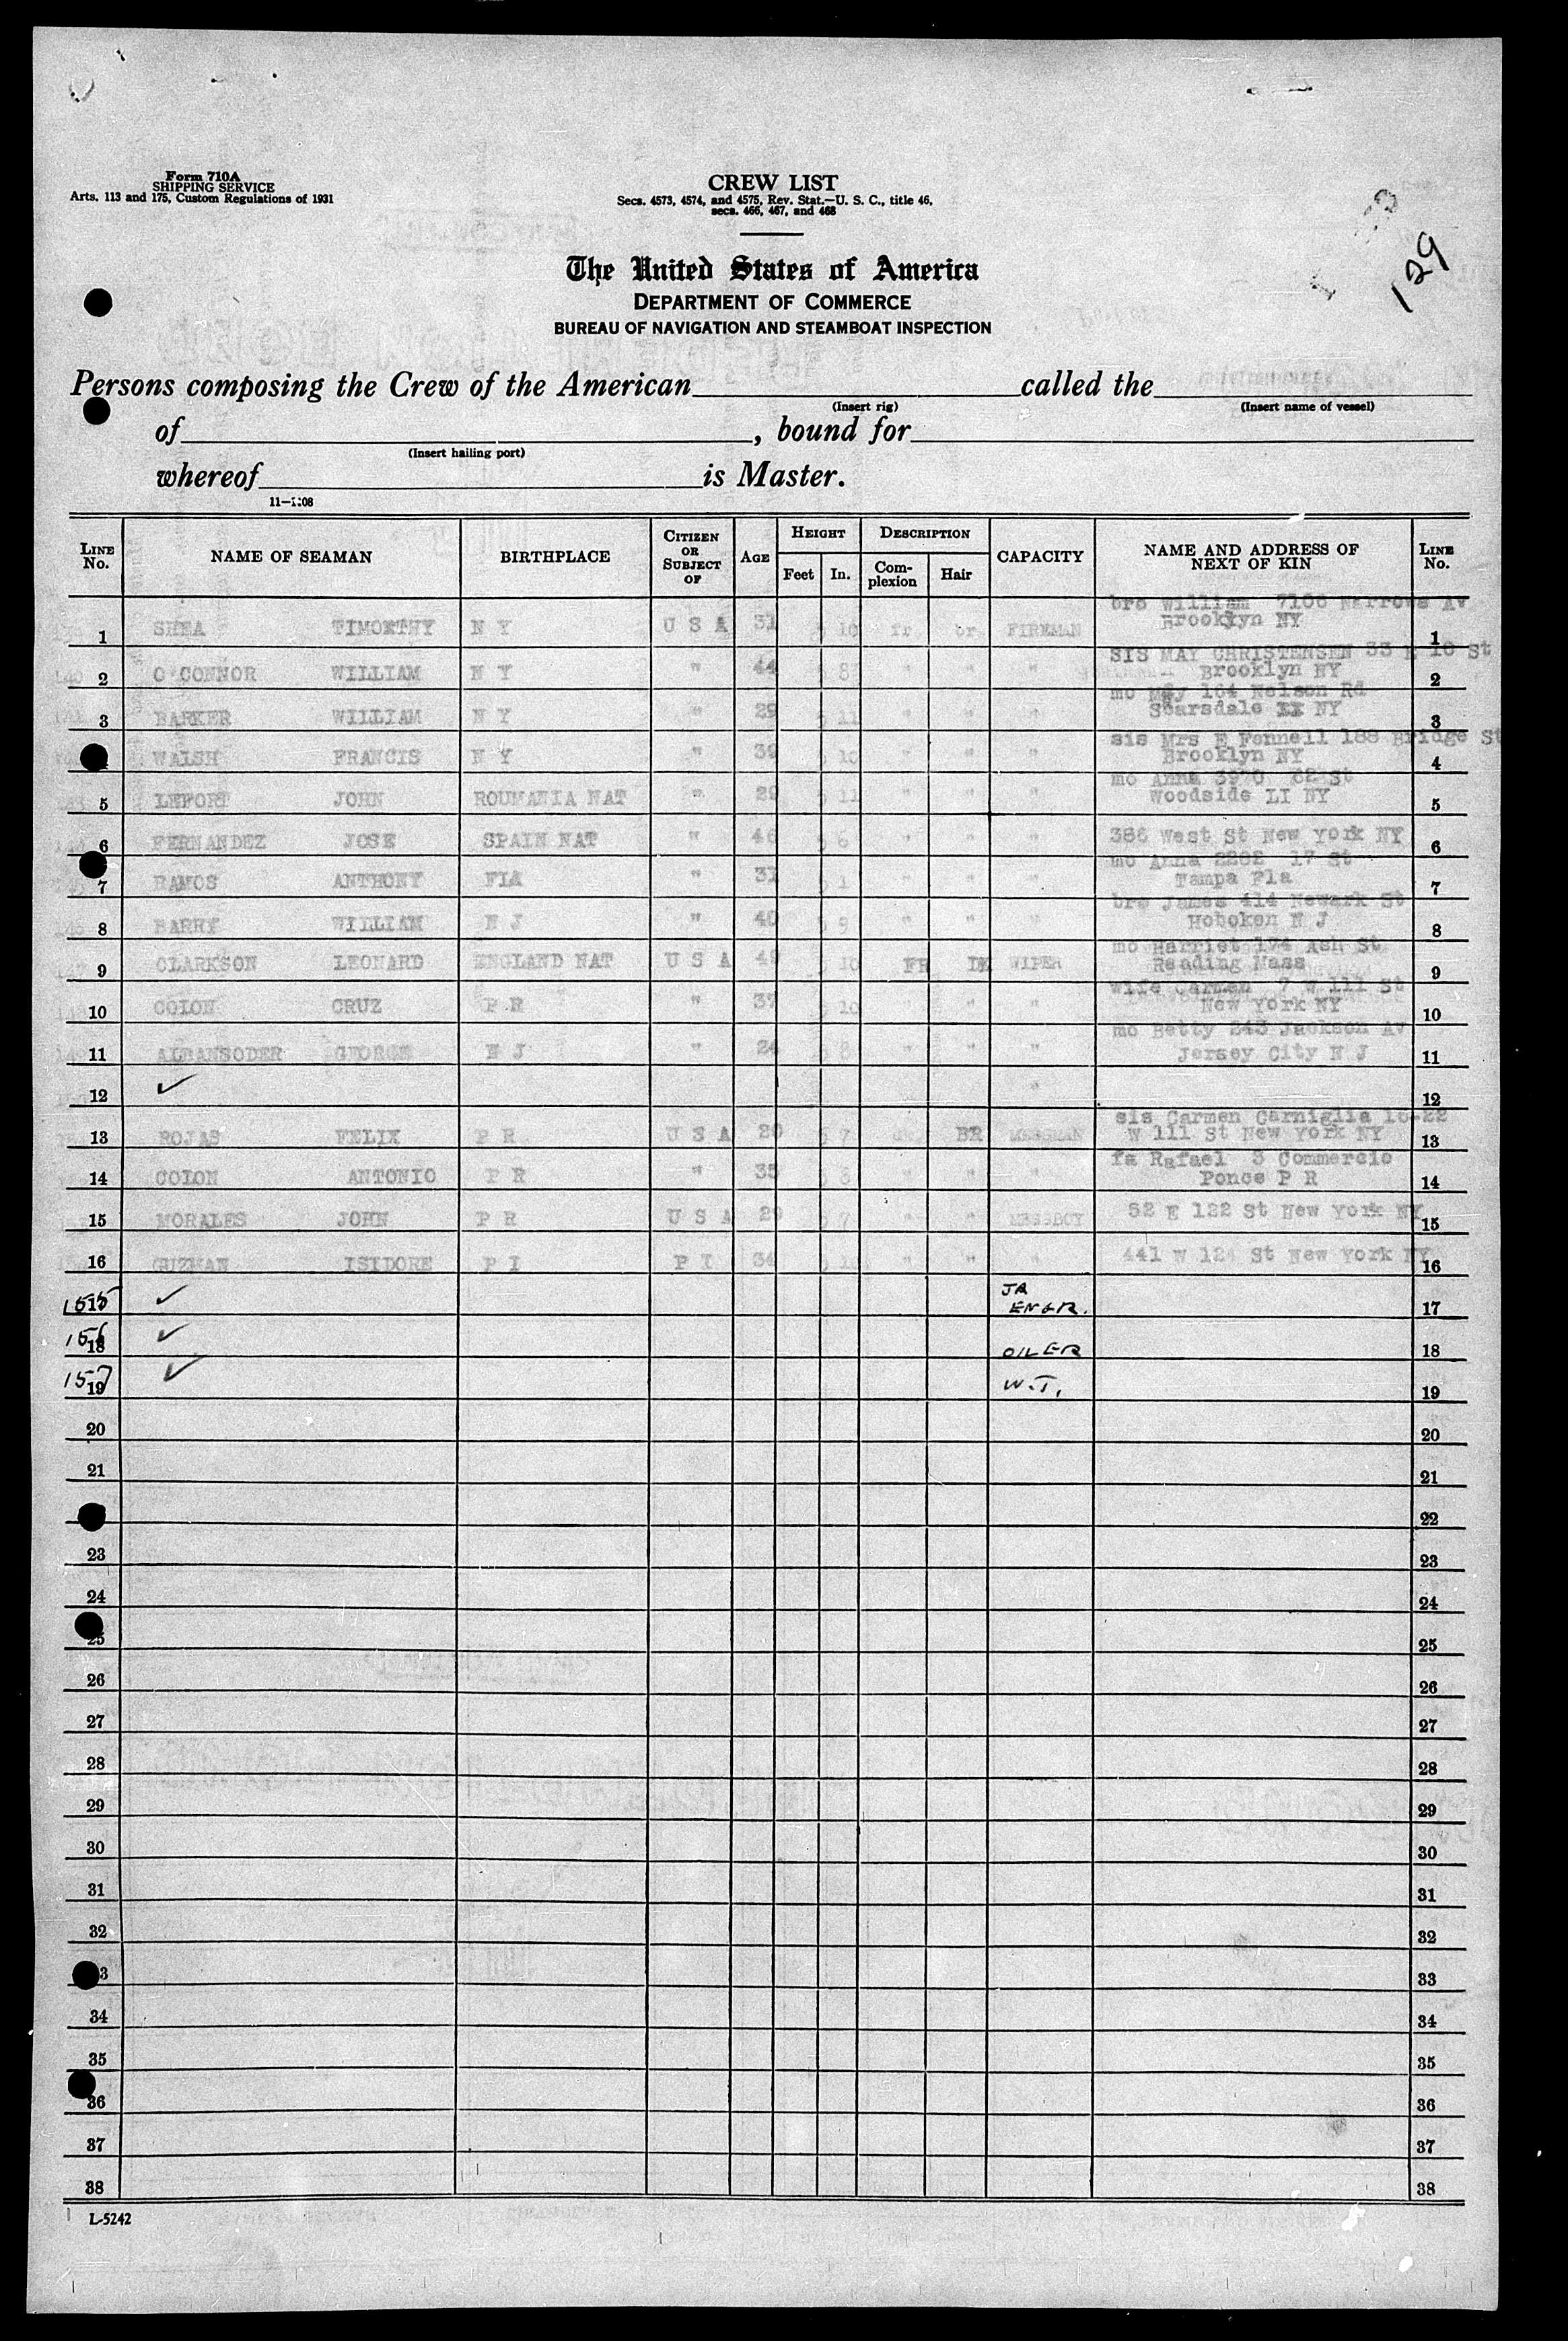 Form 710A
SHIPPING SERVICE
Arts. 113 and 175, Custom Regulations of 1931
CREW LIST
Secs. 4573, 4574, and 4575, Rev. Stat.—U. S. C., title 46,
secs. 466, 467, and 468
129
The United States of America
DEPARTMENT OF COMMERCE
BUREAU OF NAVIGATION AND STEAMBOAT INSPECTION
Persons composing the Crew of the American called the
(Insert rig) (Insert name of vessel)
of , bound for
(Insert hailing port)
whereof is Master.
LINE No. NAME OF SEAMAN BIRTHPLACE CITIZEN OR SUBJECT OF AGE HEIGHT Feet In. DESCRIPTION Complexion Hair CAPACITY NAME AND ADDRESS OF NEXT OF KIN LINE No.
bro William 7106 Narrows Av
1 SHEA TIMOTHY N Y U S A 31 5 10 fr br FIREMAN Brooklyn NY 1
SIS MAY CHRISTENSEN 33 E 10 St
2 O CONNOR WILLIAM N Y " 44 5 8 " " " Brooklyn NY 2
mo May 164 Nelson Rd
3 BARKER WILLIAM N Y " 29 5 11 " " " Scarsdale NY 3
sis Mrs E Fennell 188 Bridge St
WALSH FRANCIS N Y " 39 5 10 " " " Brooklyn NY 4
mo Anna 3970 62 St
5 LEFORT JOHN ROUMANIA NAT " 29 5 11 " " " Woodside LI NY 5
6 FERNANDEZ JOSE SPAIN NAT " 46 5 6 " " " 386 West St New York NY 6
mo Anna 17 St
7 RAMOS ANTHONY FLA " 31 5 1 " " " Tampa Fla 7
bro James 414 Newark St
8 BARRY WILLIAM N J " 40 5 9 " " " Hoboken N J 8
mo Harriet 174 Ash St
9 CLARKSON LEONARD ENGLAND NAT U S A 49 5 10 FR DK WIPER Reading Mass 9
wife Carmen 7 W 111 St
10 COLON CRUZ P R " 37 5 10 " " " New York NY 10
mo Betty 243 Jackson Av
11 ALBANSODER GEORGE N J " 24 5 8 " " " Jersey City N J 11
12 ✓ " 12
sis Carmen Carniglia 16-22
13 ROJAS FELIX P R U S A 20 5 7 BR MESSMAN W 111 St New York NY 13
fa Rafael 3 Commercio
14 COLON ANTONIO P R " 35 5 8 " " " Ponce P R 14
15 MORALES JOHN P R U S A 29 5 7 " " MESSBOY 52 E 122 St New York NY 15
16 GUZMAN ISIDORE P I P I 34 5 " " " 441 W 124 St New York NY 16
155 ✓ JR ENGR. 17
156 18 ✓ OILER 18
157 19 ✓ W.T. 19
20 20
21 21
22
23 23
24 24
25 25
26 26
27 27
28 28
29 29
30 30
31 31
32 32
33 33
34 34
35 35
36 36
37 37
38 38
L-5242